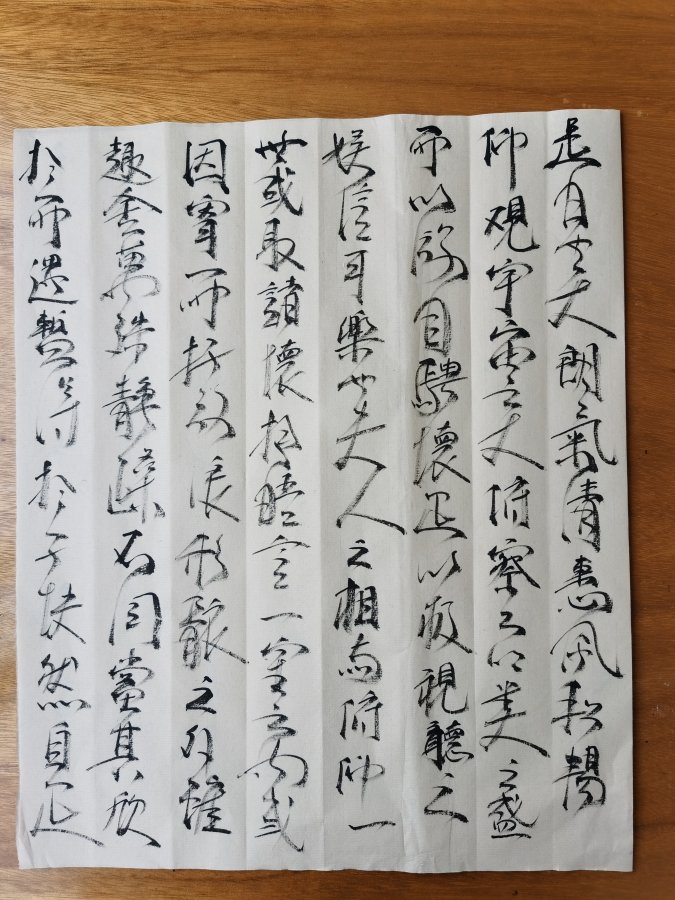 是日也天朗氣清惠風和暢
仰觀宇宙之大俯察品類之盛
所以遊目騁懷足以極視聽之
娛信可樂也夫人之相與俯仰一
世或取諸懷抱晤言一室之內或
因寄所托放浪形骸之外雖
趣舍萬殊靜躁不同當其欣
於所遇暫得於己快然自足